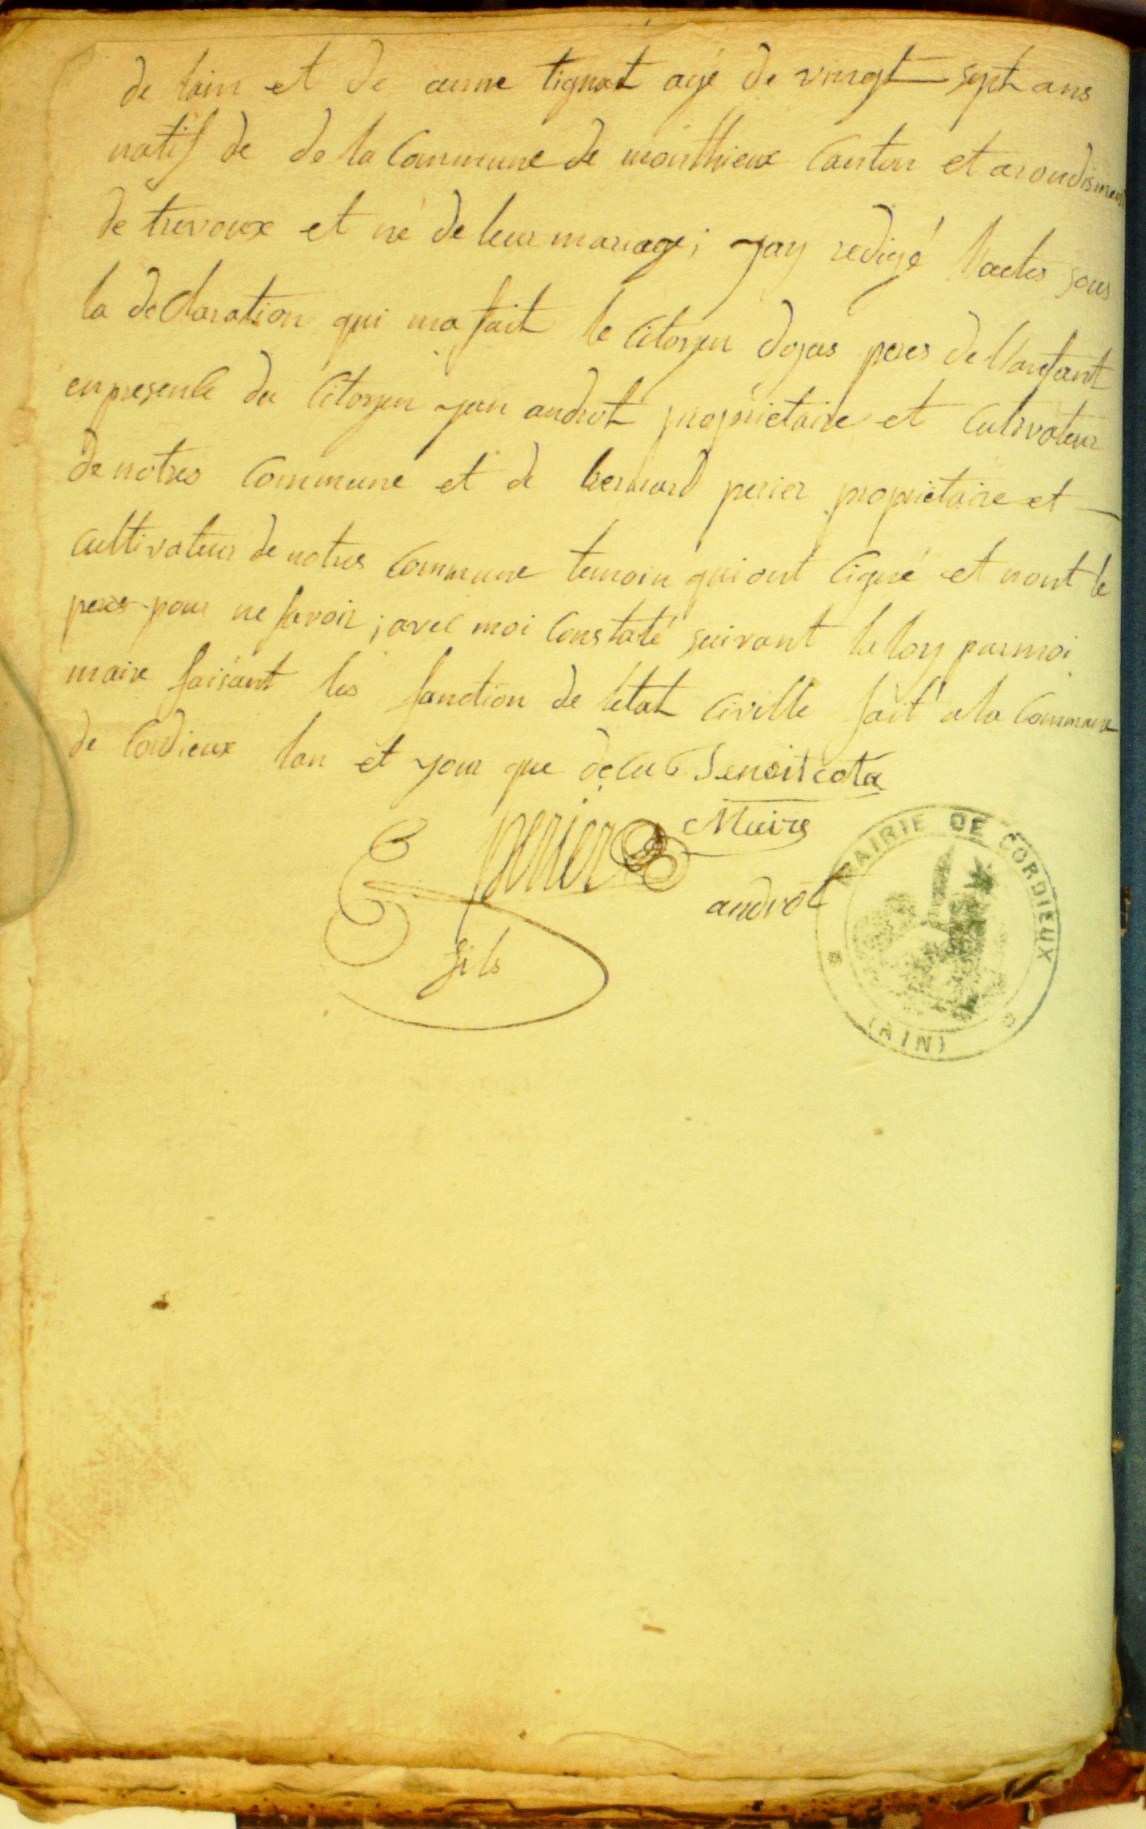 de lain et de anne tignat agé de vingt sept ans
natif de de la Commune de monthieux Canton et arondisment
de trevoux et né de leur mariage; jay redigé lactes sous
la declaration qui ma fait le Citoyen peres de lanfant
en presence du Citoyen jan androt propriétaire et cultivateur
de notres Commune et de bernard perier propriétaire et
cultivateur de notres Commune temoin qui ont signé et nont le
peres pour ne savoir; avec moi Constaté suivant la loy par moi
maire faisant les fonction de létat civille fait a la Commune
de Cordieux lan et jour que decu Benoit cota
Maire
perier
androt
fils
MAIRIE DE CORDIEUX
(AIN)